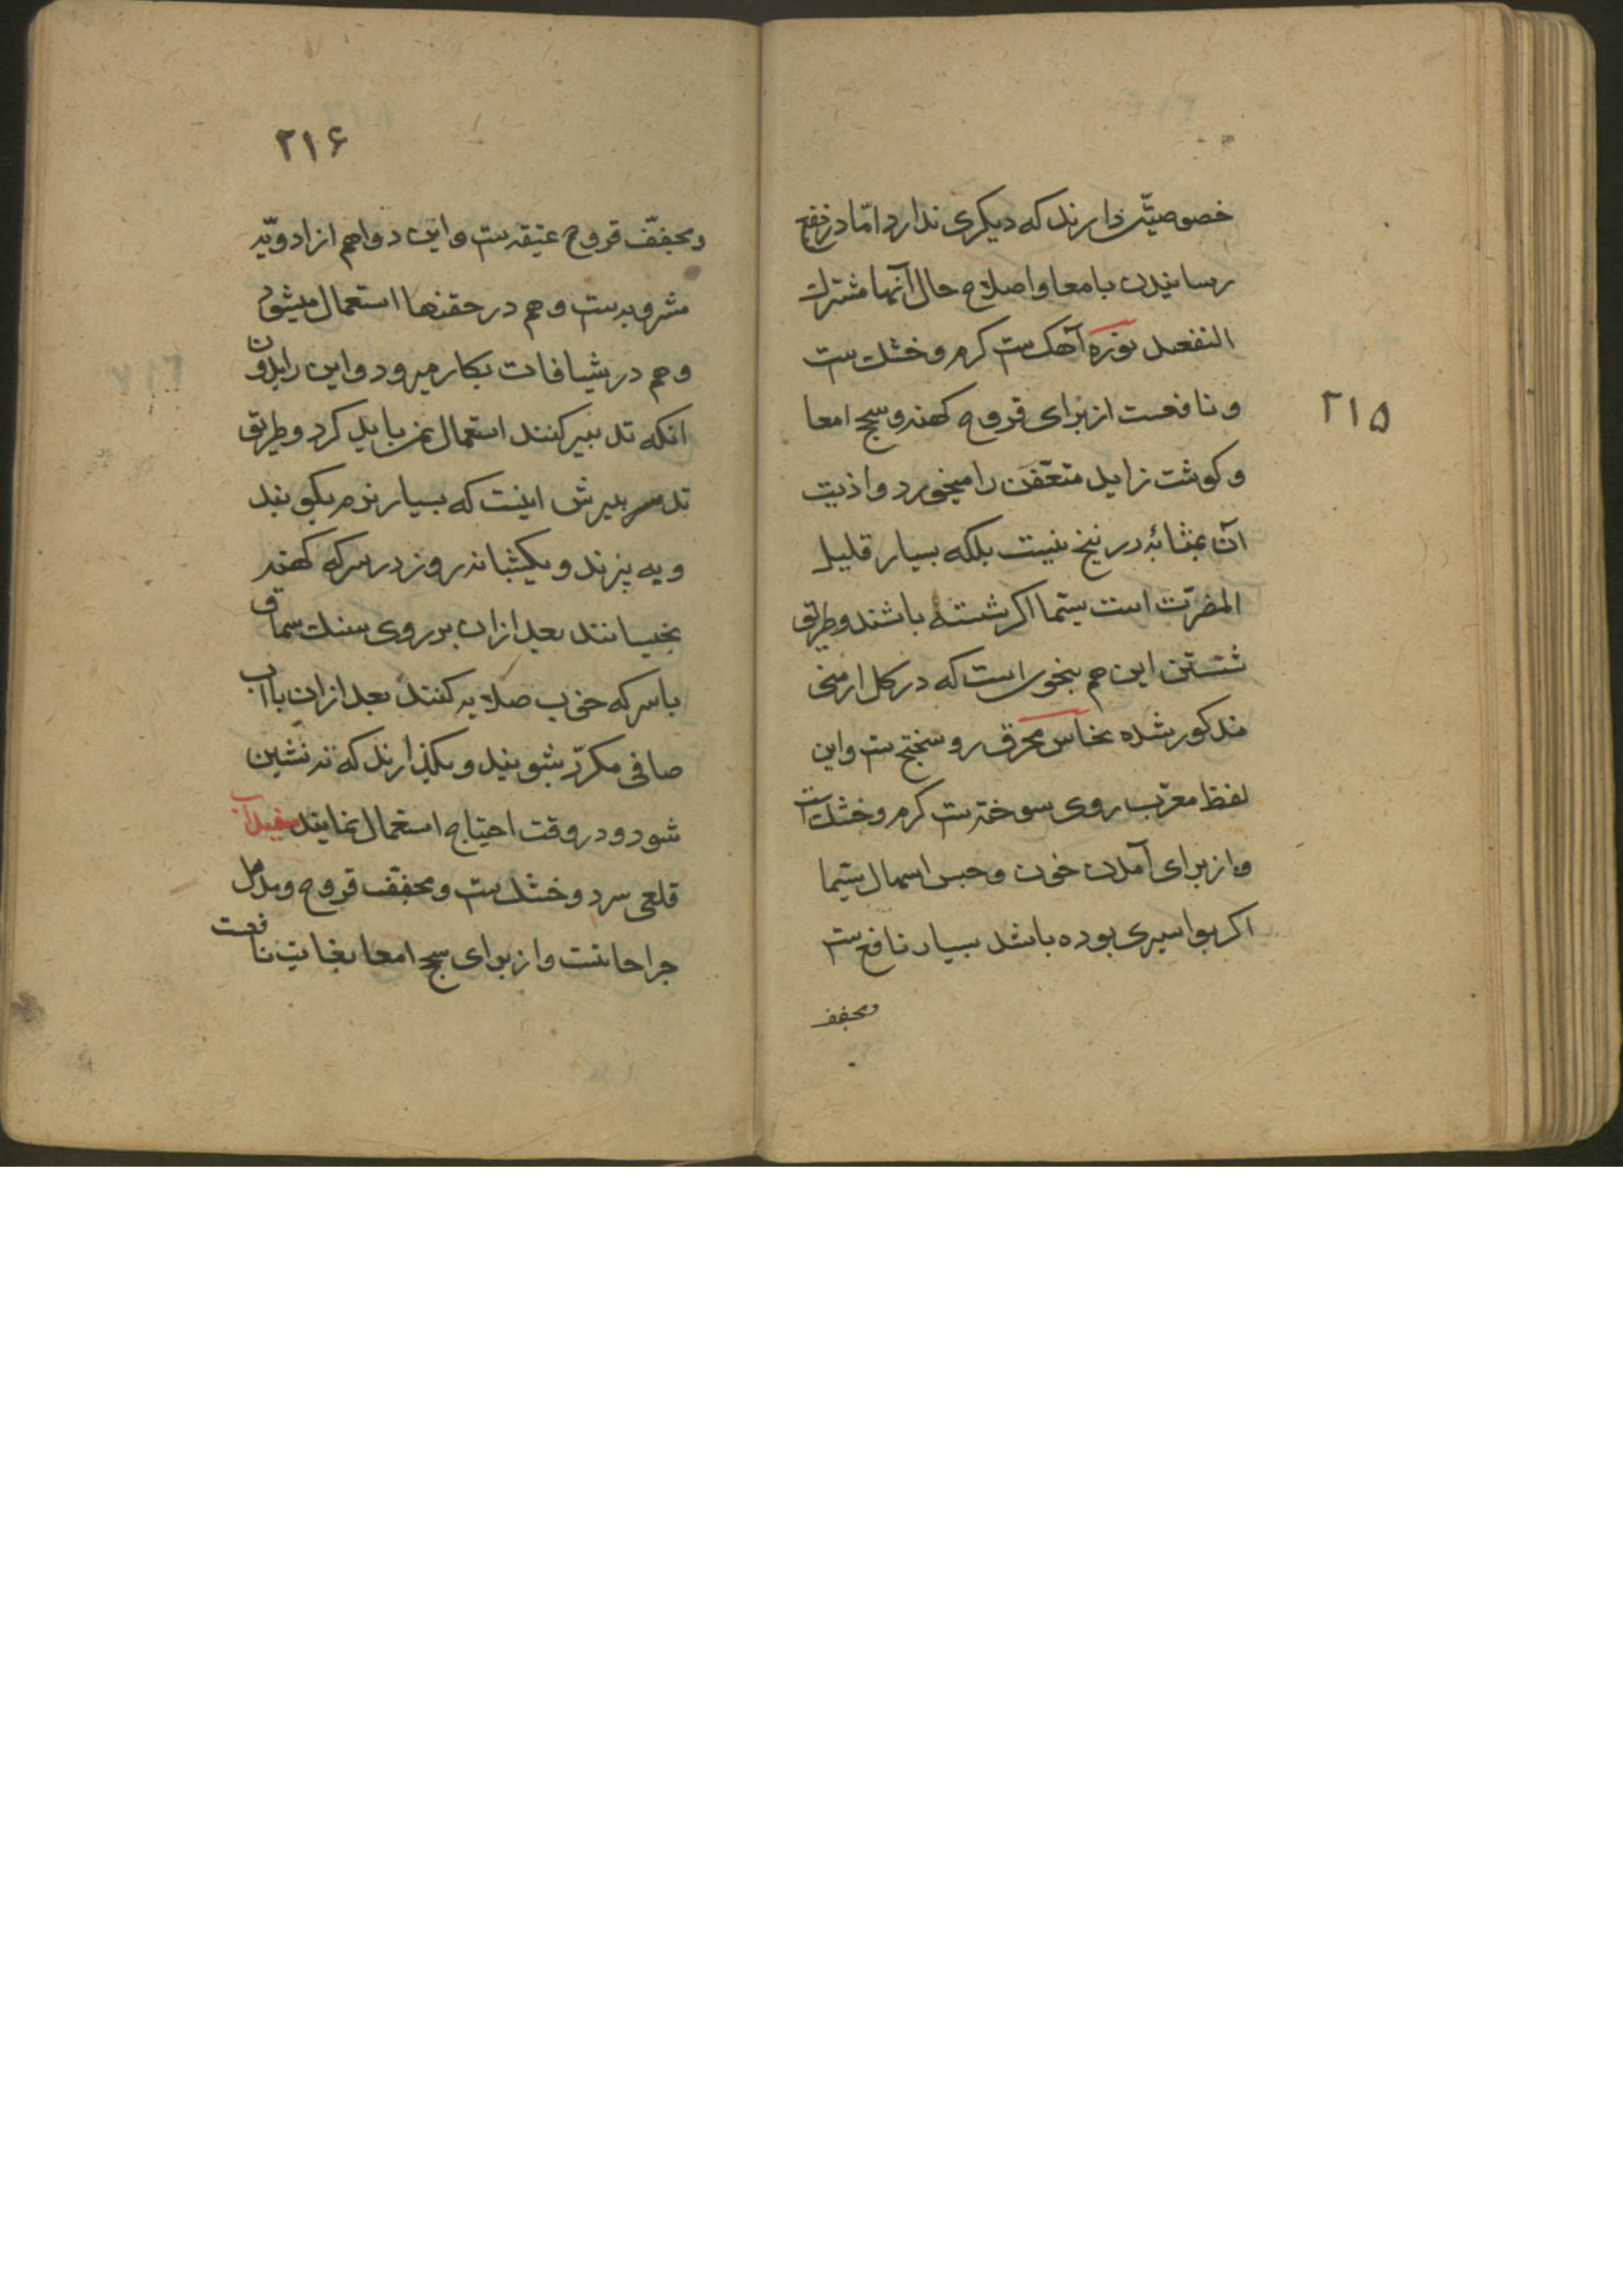 ۲۱۵
خصوصیّتی دارند که دیکری ندارد امّا در نفع
رسانیدن بامعا و اصلاح حال آنها مشترک
النفعند نوره آهکست کرم و خشکست
و نافعست از برای قروح کهنه و سحج امعا
و کوشت زاید متعّفن را میخورد و اذیت
آن بمثابۀ زرنیخ نیست بلکه بسیار قلیل
المضرّت است سیّما اکر شسته باشند و طریق
شستن این هم بنحوی است که در کل ارمنی
مذکور شده نحاس محرق روسختج ست و این
لفظ معرّب روی سوخته ست کرم و خشک است
و از برای آمدن خون و حبس اسهال سیّما
اکر بواسیری بوده باشد بسیار نافع ست
ومجفف
۲۱۶
ومجفّف قروح عتیقه ست و این دوا هم از ادویّه
مشروبه ست و هم در حقنها استعمال میشود
و هم در شیافات بکار میرود و این را بدون
انکه تدبیر کنند استعمال نباید کرد و طریق
تدبیرش اینست که بسیار نرم بکوبند
و به پزند و یکشبانه روز در سرکه کهنه
بخیسانند بعد ازان بر روی سنک سماق
با سرکه خوب صلایه کنند بعد ازان با آب
صافی مکرّر بشویند و بکذارند که ته نشین
شود و در وقت احتیاج استعمال نمایند سفیدآب
قلعی سرد و خشک ست و مجفّف قروح و مدمل
جراحاتست و از برای سحج امعا بغایت نافعست